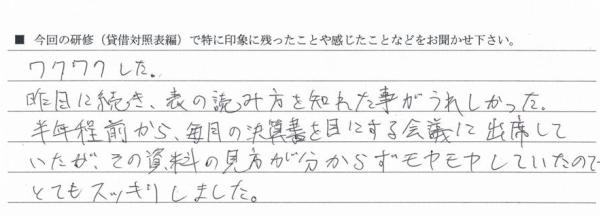 ■ 今回の研修（貸借対照表編）で特に印象に残ったことや感じたことなどをお聞かせ下さい。
ワクワクした。
昨日に続き、表の読み方を知れた事がうれしかった。
半年程前から、毎月の決算書を目にする会議に出席して
いたが、その資料の見方が分からずモヤモヤしていたので
とてもスッキリしました。